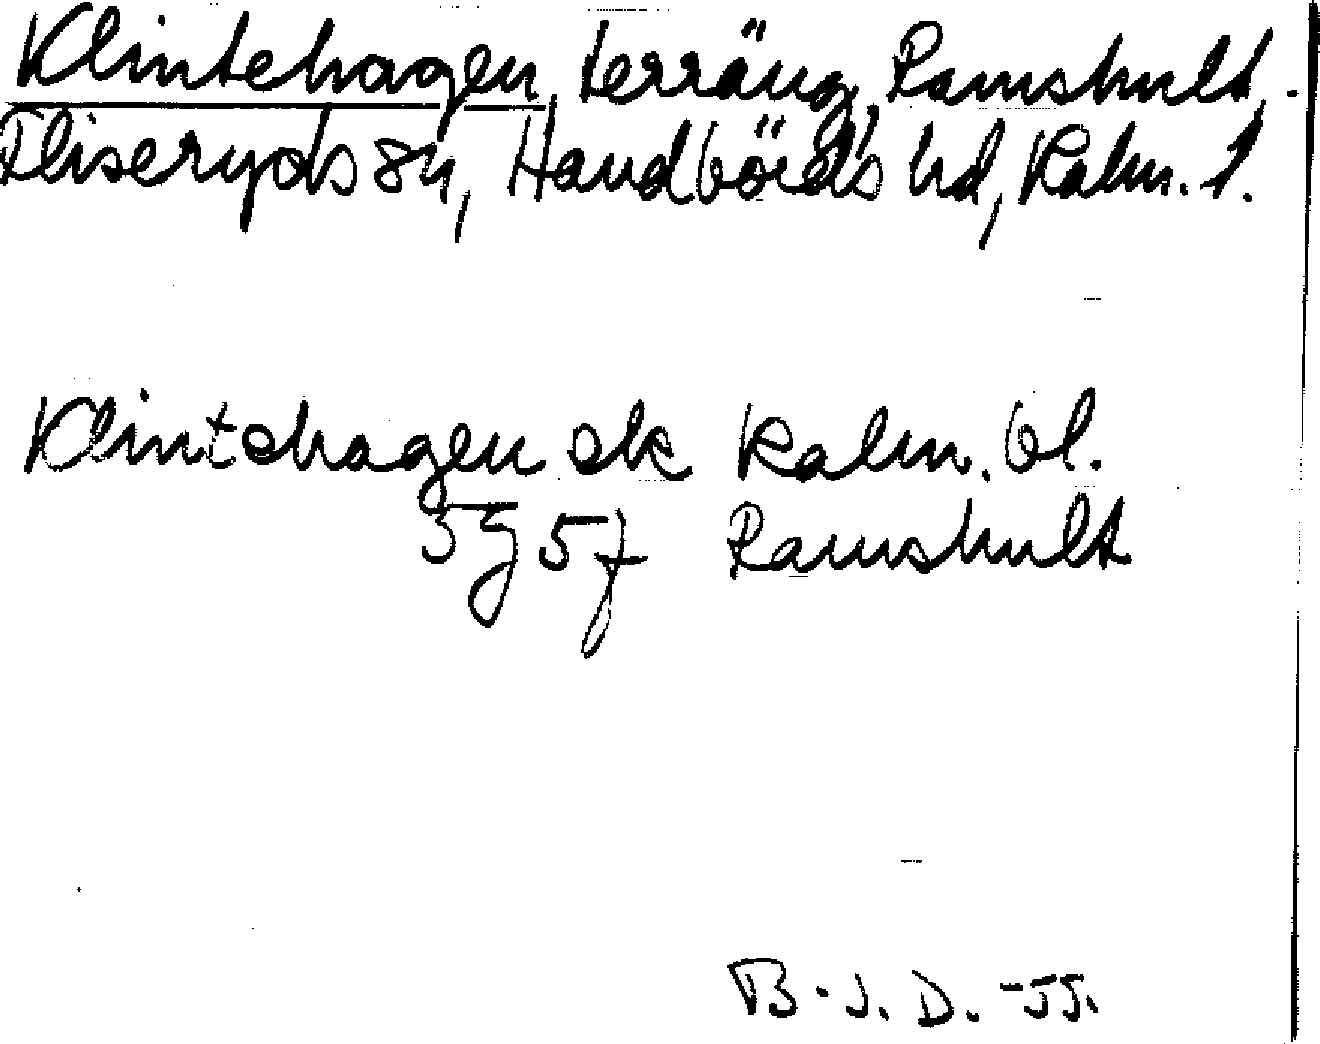 Klintehagen, terräng, Ramshult,
Fliseryds sn, Handbörds hd, Kalm. l.
Klintehagen ek Kalm. bl.
5g5f Ramshult
B.J.D. -55.